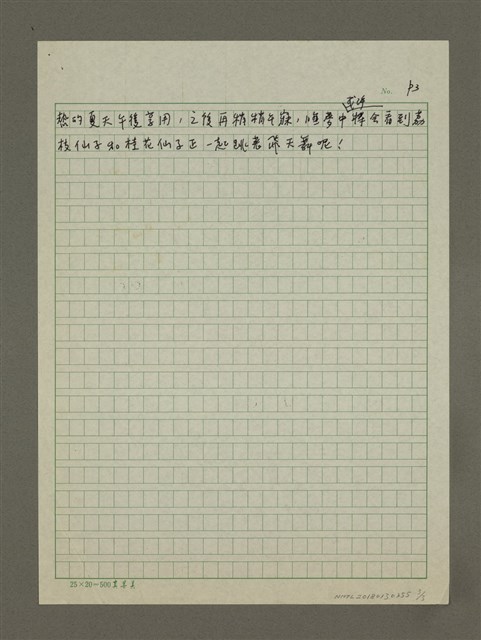 No. P3
或準
熱的夏天午後享用，之後再稍稍午寐，睡夢中將會看到荔
枝仙子和桂花仙子正一起跳著飛天舞呢！
25×20=500
NMTL20180130355 3/3